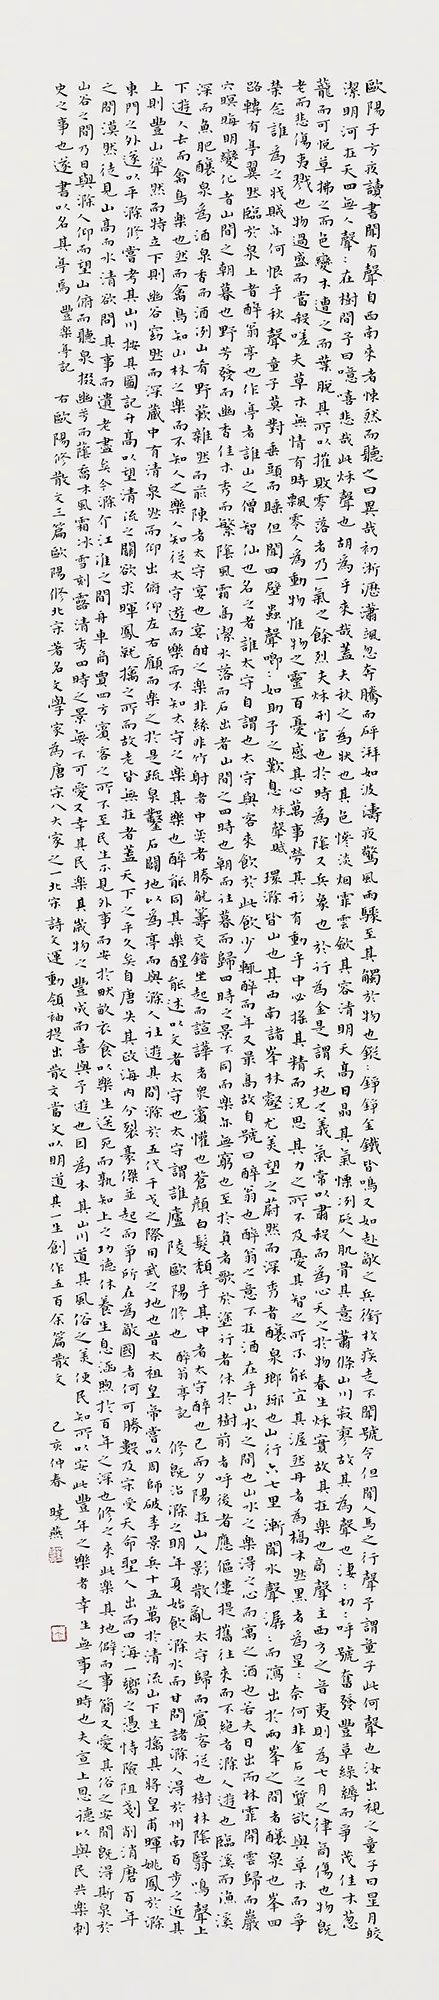 歐陽子方夜讀書聞有聲自西南來者悚然而聽之曰異哉初淅瀝瀟颯忽奔騰而砰湃如波濤夜驚風雨驟至其觸於物也鏦:錚錚金鐵皆鳴又如赴敵之兵銜枚疾走不聞號令但聞人馬之行聲予謂童子此何聲也汝出視之童子曰星月皎
潔明河在天四無人聲:在樹間予曰噫嘻悲哉此秌聲也胡為乎來哉蓋夫秋之為狀也其色慘淡烟霏雲斂其容清明天高日晶其氣慄冽砭人肌骨其意蕭條山川寂寥故其為聲也淒:切:呼號奮發豐草綠縟而爭茂佳木蔥
蘢而可悅草拂之而色變木遭之而葉脫其所以摧敗零落者乃一氣之餘烈夫秌刑官也於時為陰又兵象也於行為金是謂天地之義氣常以肅殺而為心天之於物春生秌實故其在樂也商聲主西方之音夷則為七月之律商傷也物既
老而悲傷夷戮也物過盛而當殺嗟夫草木無情有時飄零人為動物惟物之靈百憂感其心萬事勞其形有動乎中必搖其精而況思其力之所不及憂其智之所不能宜其渥然丹者為槁木然黑者為星:奈何非金石之質欲與草木而爭
榮念誰為之戕賊亦何恨乎秋聲童子莫對垂頭而睡但聞四壁蟲聲唧:如助予之歎息 秌聲賦 環滁皆山也其西南諸峯林壑尤美望之蔚然而深秀者瑯琊也山行六七里漸聞水聲潺:而瀉出於兩峯之間者釀泉也峯回
路轉有亭翼然臨於泉上者醉翁亭也作亭者誰山之僧智仙也名之者誰太守自謂也太守與客來飲於此飲少輒醉而年又最高故自號曰醉翁也醉翁之意不在酒在乎山水之間也山水之樂得之心而寓之酒也若夫日出而林霏開雲歸而巖
穴暝晦明變化者山間之朝暮也野芳發而幽香佳木秀而繁陰風霜高潔水落而石出者山間之四時也朝而往暮而歸四時之景不同而樂亦無窮也至於負者歌於塗行者休於樹前者呼後者應傴僂提攜往來而不絕者滁人遊也臨溪而漁溪
深而魚肥釀泉為酒泉香而酒洌山肴野蔌雜然而前陳者太守宴也宴酣之樂非絲非竹射者中奕者勝觥籌交錯坐起而諠譁者衆賓懽也蒼顏白髮頹乎其中者太守醉也已而夕陽在山人影散亂太守歸而賓客從也樹林陰翳鳴聲上
下遊人去而禽鳥樂也然而禽鳥知山林之樂而不知人之樂人知從太守遊而樂而不知太守之樂其樂也醉能同其樂醒能述以文者太守也太守謂誰廬陵歐陽修也 醉翁亭記 修既治滁之明年夏始飲滁水而甘問諸滁人得於州南百步之近其
上則豐山聳然而特立下則幽谷窈然而深藏中有清泉然而仰出俯仰左右顧而樂之於是疏泉鑿石闢地以為亭而與滁人往遊其間滁於五代干戈之際用武之地也昔太祖皇帝嘗以周師破李景兵十五萬於清流山下生擒其將皇甫暉姚鳳於滁
東門之外遂以平滁修嘗考其山川按其圖記升高以望清流之關欲求暉鳳就擒之所而故老皆無在者蓋天下之平久矣自唐失其政海內分裂豪傑並起而爭所在為敵國者何可勝數及宋受天命聖人出而四海一嚮之憑恃險阻剗削消磨百年
之間漠然徒見山高而水清欲問其事而遺老盡矣今滁介江淮之間舟車商賈四方賓客之所不至民生不見外事而安於畎畝衣食以樂生送死而孰知上之功德休養生息涵煦於百年之深也修之來此樂其地僻而事簡又愛其俗之安閒既得斯泉於
山谷之間乃日與滁人仰而望山俯而聽泉掇幽芳而蔭喬木風霜冰雪刻露清秀四時之景無不可愛又幸其民樂其歲物之豐成而喜與予遊也因為本其山川道其風俗之美使民知所以安此豐年之樂者幸生無事之時也夫宣上恩德以與民共樂刺
史之事也遂書以名其亭焉 豐樂亭記 右歐陽修散文三篇歐陽修北宋著名文學家為唐宋八大家之一北宋詩文運動領袖提出散文當文以明道其一生創作五百余篇散文 己亥仲春 曉燕